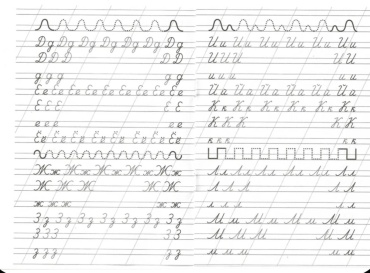 Дд Дд Дд Дд Дд Дд Дд
Д Д Д Д Д
д д д д д
Ее Ее Ее Ее Ее Ее Ее Ее
Е Е Е Е Е
е е е е е
Ёё Ёё Ёё Ёё Ёё Ёё Ёё
Жж Жж Жж Жж Жж Жж
Ж Ж Ж Ж Ж
ж ж ж ж ж
Зз Зз Зз Зз Зз Зз Зз
З З З З З
з з з з з
Ии Ии Ии Ии Ии Ии
И И И И И
и и и и и
Йй Йй Йй Йй Йй Йй
Кк Кк Кк Кк Кк Кк
К К К К К
к к к к к
Лл Лл Лл Лл Лл Лл
Л Л Л Л Л
л л л л л
Мм Мм Мм Мм Мм
М М М М М
м м м м м